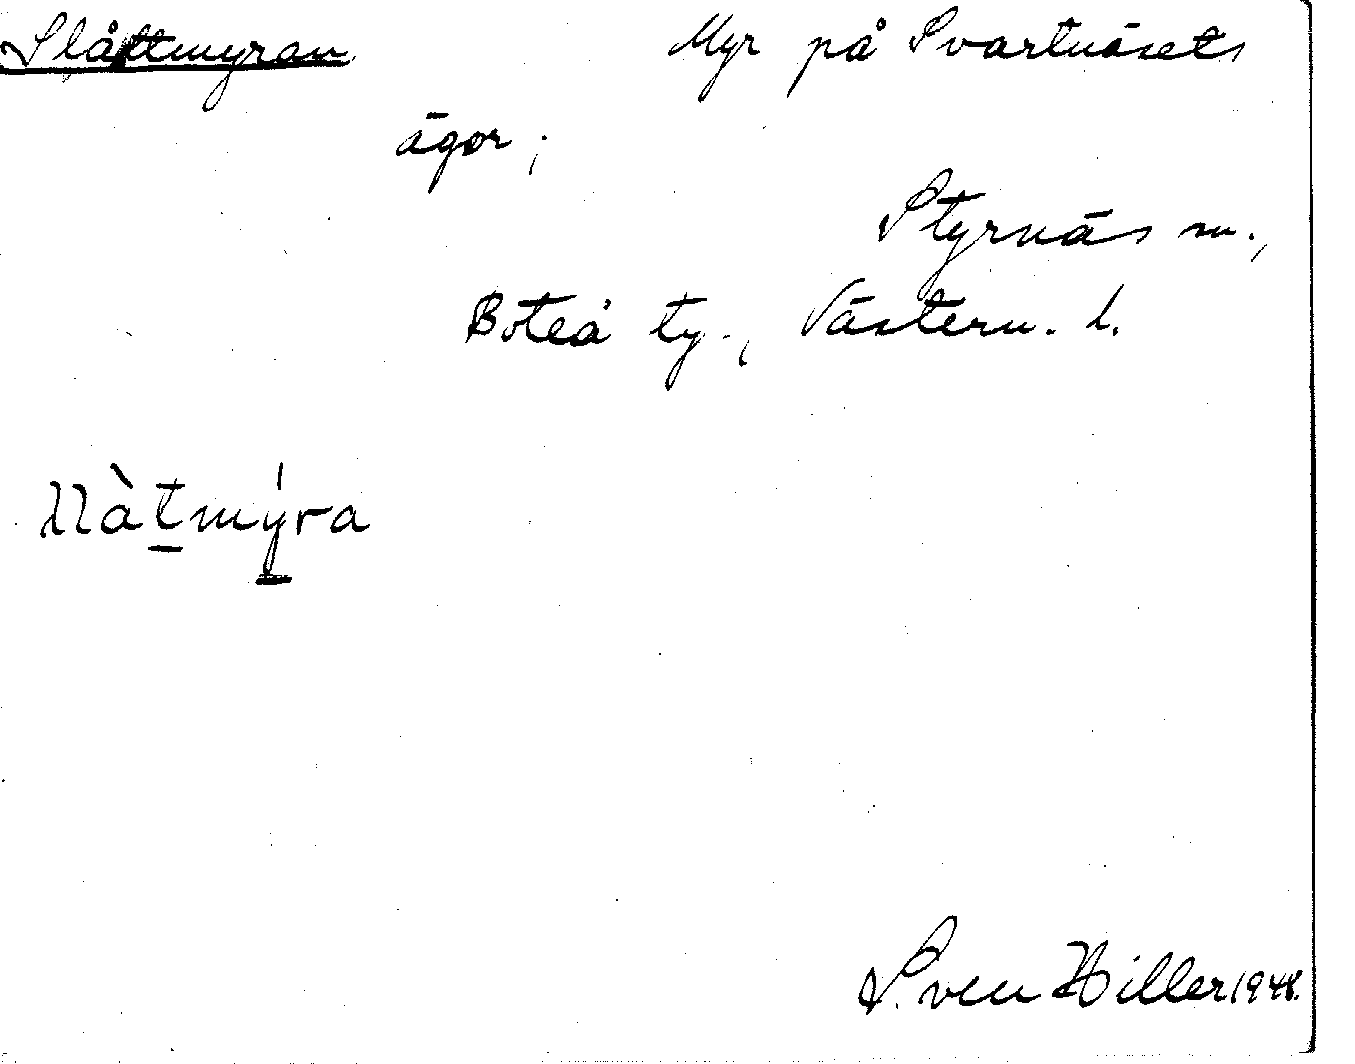 Slåttmyran Myr på Svartnäsets
ägor;
Styrnäs sn.,
Boteå ty., Västern. l.
Sven Hiller 1948.